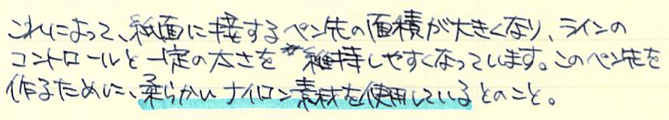 これによって、紙面に接するペン先の面積が大きくなり、ラインの
コントロールと一定の太さを維持しやすくなっています。このペン先を
作るために、柔らかいナイロン素材を使用しているとのこと。